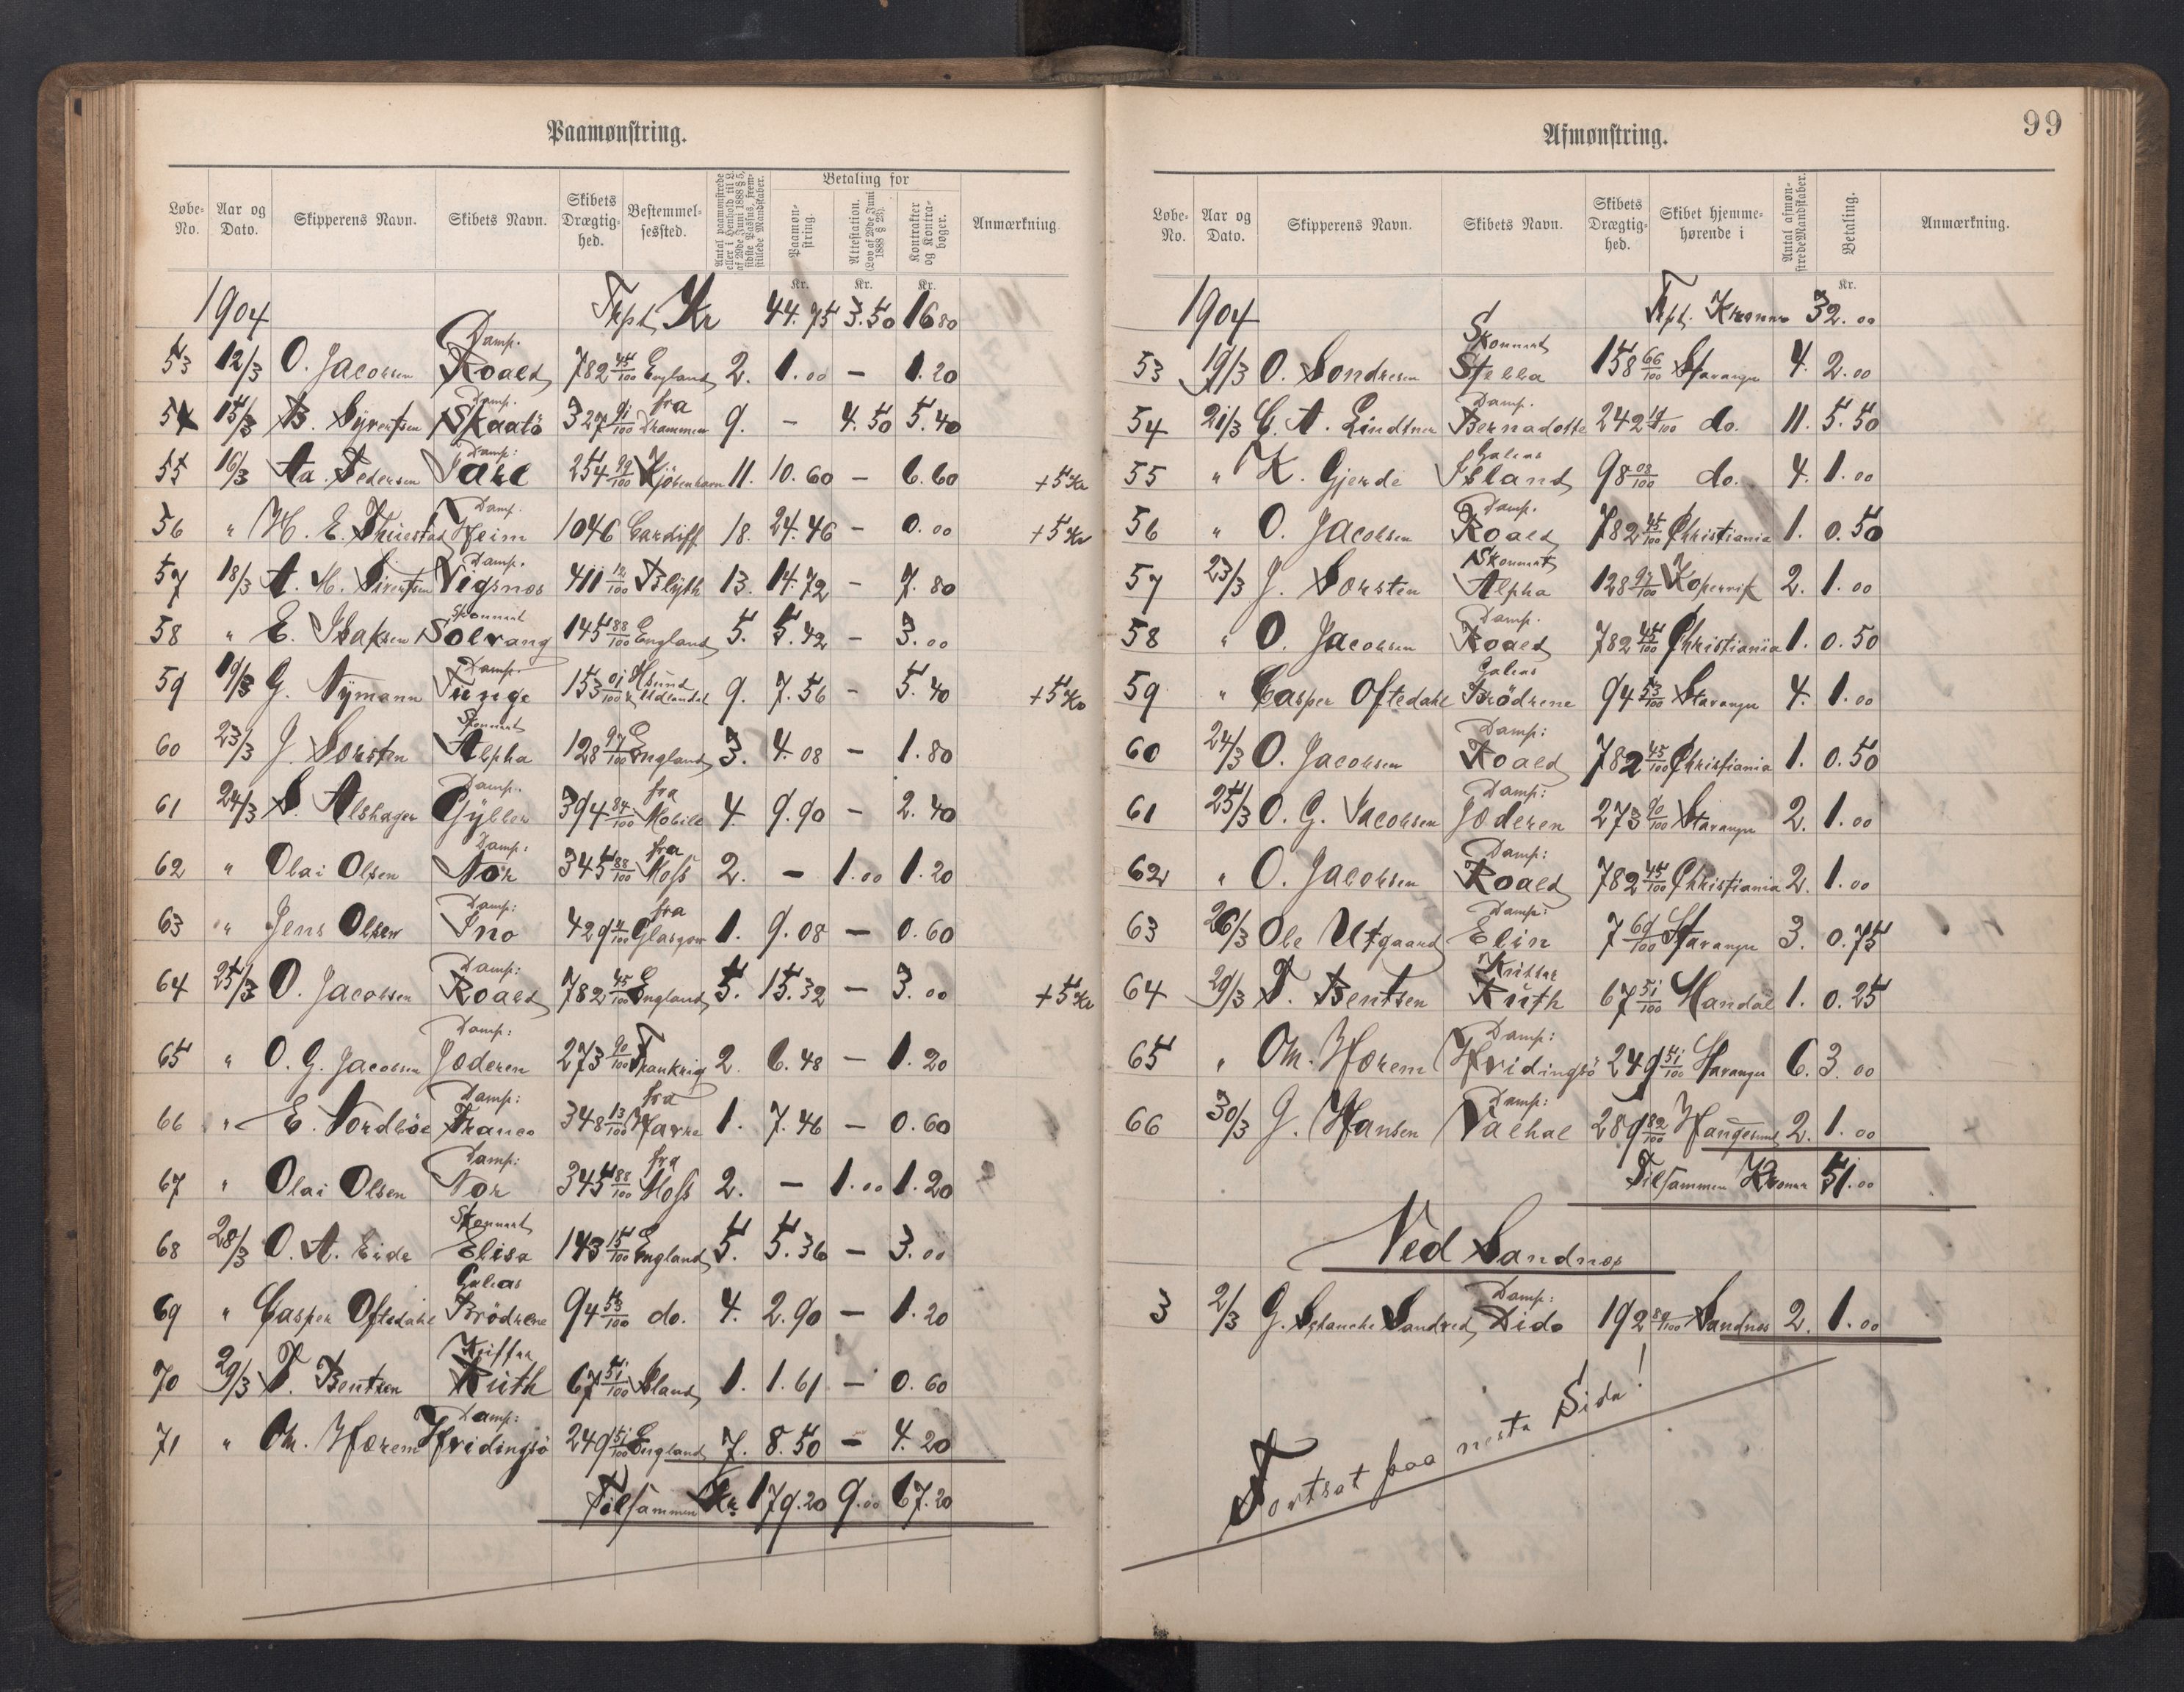 Paamønstring.
Løbe-No. Aar og Dato. Skipperens Navn. Skibets Navn. Skibets Drægtighed. Bestemmelsessted. Antal paamønstrede eller i Henhold til L. af 29de Juni 1888 § 5, sidste Passus, fremstillede Mandskaber. Betaling for Paamønstring. Attestation. (Lov af 29de Juni 1888 § 23). Kontrakter og Kontrabøger. Anmærkning.
Kr. Kr. Kr.
1904 Trpt. Kr 44.75 3.50 16 80
53 12/3 O. Jacobsen Damp. Roald 782 45/100 England 2. 1.00 — 1.20
54 15/3 B. Syvertsen Damp. Skaatö 327 91/100 fra Drammen 9. — 4.50 5.40
55 16/3 Aa. Pedersen Damp: Jarl 254 99/100 Kjöbenhavn 11. 10.60 — 6.60 +5 Kr
56 " H. E. Thuestad Damp. Heim 1046 Cardiff 18. 24.46 — 0.00 +5 Kr
57 18/3 A. M. Sivertsen Damp. Vigsnes 411 12/100 Blyth 13. 14.72 — 7.80
58 " E. Isaksen Skonnert Solvang 145 88/100 England 5. 5.42 — 3.00
59 19/3 G. Nymann Damp. Tunge 153 01/100 H.sund & Udlandet 9. 7.56 — 5.40 +5 Kr
60 23/3 J. Sorsten Skonnert Alpha 128 97/100 England 3. 4.08 — 1.80
61 24/3 S. Alshager Damp. Gyller 394 84/100 fra Mobile 4. 9.90 — 2.40
62 " Olai Olsen Damp: Nor 345 88/100 fra Moss 2. — 1.00 1.20
63 " Jens Olsen Damp: Ino 429 fra Glasgow 1. 9.08 — 0.60
64 25/3 O. Jacobsen Damp: Roald 782 45/100 England 5. 15.32 — 3.00 +5 Kr
65 " O. G. Jacobsen Damp: Jæderen 273 90/100 Frankrig 2. 6.48 — 1.20
66 " E. Nordböe Damp: Franco 348 13/100 fra Havre 1. 7.46 — 0.60
67 " Olai Olsen Damp: Nor 345 88/100 fra Moss 2. — 1.00 1.20
68 28/3 O. A. Eide Skonnert Elisa 143 15/100 England 5. 5.36 — 3.00
69 " Casper Oftedahl Galeas Brödrene 94 53/100 do. 4. 2.90 — 1.20
70 29/3 T. Bentsen Kutter Ruth 67 51/100 Island 1. 1.61 — 0.60
71 " Om. Hærem Damp: Hvidingsö 249 51/100 England 7. 8.50 — 4.20
Tilsammen Kr 179.20 9.00 67.20
99
Afmønstring.
Løbe-No. Aar og Dato. Skipperens Navn. Skibets Navn. Skibets Drægtighed. Skibet hjemmehørende i Antal afmønstrede Mandskaber. Betaling. Anmærkning.
Kr.
1904 Trpt. Kroner 32.00
53 19/3 O. Sondresen Skonnert Stella 158 66/100 Stavanger 4. 2.00
54 21/3 C. A. Lindtner Damp. Bernadotte 242 19/100 do. 11. 5.50
55 " K. Gjerde Galeas Island 98 08/100 do. 4. 1.00
56 " O. Jacobsen Damp. Roald 782 45/100 Christiania 1. 0.50
57 23/3 J. Sorsten Skonnert Alpha 128 97/100 Kopervik 2. 1.00
58 " O. Jacobsen Damp. Roald 782 45/100 Christiania 1. 0.50
59 " Casper Oftedahl Galeas Brödrene 94 53/100 Stavanger 4. 1.00
60 24/3 O. Jacobsen Damp: Roald 782 45/100 Christiania 1. 0.50
61 25/3 O. G. Jacobsen Damp: Jæderen 273 90/100 Stavanger 2. 1.00
62 " O. Jacobsen Damp: Roald 782 45/100 Christiania 2. 1.00
63 26/3 Ole Utgaard Damp: Elin 7 69/100 Stavanger 3. 0.75
64 29/3 T. Bentsen Kutter Ruth 67 51/100 Mandal 1. 0.25
65 " Om. Hærem Damp: Hvidingsö 249 51/100 Stavanger 6. 3.00
66 30/3 J. Hansen Damp: Valhal 289 82/100 Haugesund 2. 1.00
Tilsammen Kroner 51.00
Ved Sandnes
3 2/3 G. Schanche Sandved Damp: Dido 192 89/100 Sandnes 2. 1.00
Fortsat paa neste Side!